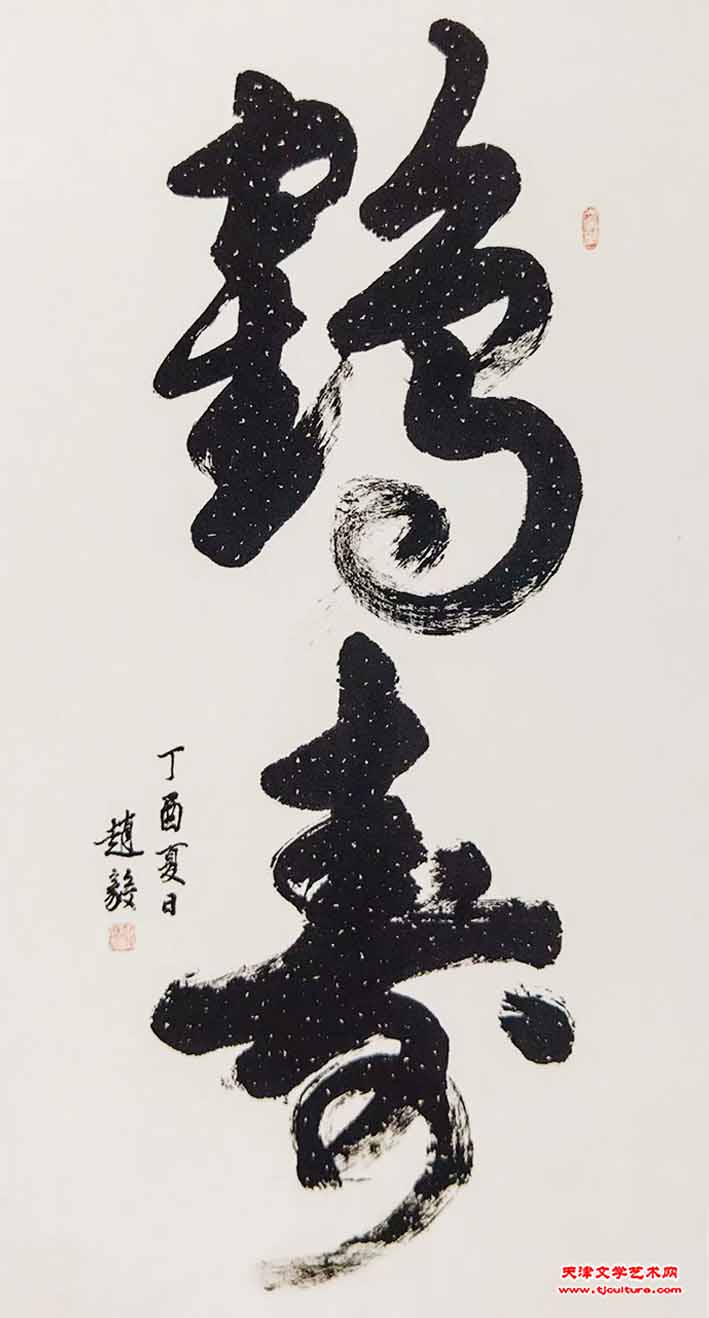 鶴壽
丁酉夏日
趙毅
天津文学艺术网
www.tjculture.com